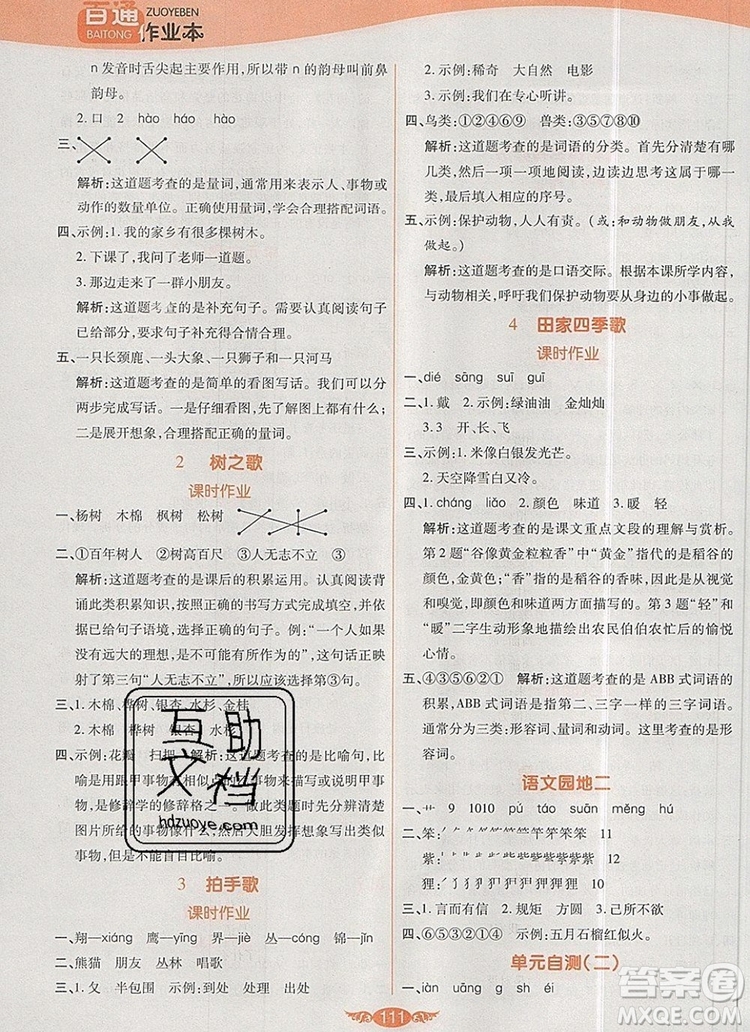 百通
BAITONG
ZUOYEBEN
作业本
n 发音时舌尖起主要作用,所以带 n 的韵母叫前鼻
韵母。
2. 口 2 hào háo hào
三、
解析:这道题考查的是量词,通常用来表示人、事物或
动作的数量单位。正确使用量词,学会合理搭配词语。
四、示例:1. 我的家乡有很多棵树木。
2. 下课了,我问了老师一道题。
3. 那边走来了一群小朋友。
解析:这道题考查的是补充句子。认真阅读句子
已给部分,写完整的句子。写出的句子可以多种
多样,只要合理合情合理。
五、一只长颈鹿、一头大象、一只狮子、一只河马
解析:这道题考查的是简单的看图写话。我们可以分
两步完成写话。一是仔细看图,看图上都有什么;
二是展开想象,合理搭配正确的量词。
2 树之歌
课时作业
一、杨树 木棉 枫树 松树
二、①百年树人 ②树高百尺 ③人无志不立 ③
解析:这道题考查的是课后的积累运用。认真阅读背
诵此类积累知识,按照正确的书写方式完成填空。
可以进行句子语境,选择使用语句。例:“一个人如果
没有远大的理想,是不能够有所作为的。”这句话正
好反映了第三句“人无志不立”,所以应选第③句。
三、1. 木棉、桦树、银杏、水杉、金桂
2. 木棉 桦树 银杏 水杉
四、示例:花瓣 扫把 解析:这道题考查的是比喻句,
指的是用跟甲事物有相似点的乙事物来说明甲事
物,是修辞学的修辞格之一。先要仔细分辨清楚
图片上的事物像什么,然后大胆发挥想象写出类似
事物,但不能盲目比喻。
3 拍手歌
课时作业
一、翔—xiáng 鹰—yīng 界—jiè 丛—cóng 锦—jǐn
二、熊猫 朋友 丛林 唱歌
三、1. 父 半包围 示例:爸爸 爷爷
2. 示例:稀奇 大自然 电影
3. 示例:我们在专心听讲。
四、鸟类:①②④⑥⑨ 兽类:③⑤⑦⑧⑩
解析:这道题考查的是词语的分类。首先分清楚有哪
几类,然后一项一项地阅读,边读边思考这一项属于
哪一类,最后填入相应的序号。
五、示例:保护动物,人人有责。(或:和动物做朋友,从我
做起。)
解析:这道题考查的是口语交际。根据本课所学内容,
结合实际,呼吁我们保护动物从身边的小事做起。
4 田家四季歌
课时作业
一、dié sāng suī guī
二、1. 戴 2. 示例:绿油油 金灿灿
3. 3 开、长、飞
三、示例:1. 米像白银发光芒。
2. 天空降雪白又冷。
四、1. cháng liǎo 2. 颜色 味道 3. 暖 轻
解析:这道题考查的是课文重点文段的理解与赏析。
第 2 题“谷像黄金粒粒香”中“黄金”指代的是稻谷的
颜色,金黄色;“香”指的是稻谷的香味,因此从视觉
和嗅觉,即颜色和味道两方面描写的。第 3 题“轻”和
“暖”二字生动形象地描绘出农民伯伯愉快的愉悦
心情。
五、④③⑤⑥②① 解析:这道题考查的是 ABB 式词语的
积累,ABB 式词语指第二、三字一样的三字词语。
通常分为三类:形容词、量词、名词。这里考查的是形
容词。
语文园地二
一、艹 9 1010 pú táo suān měng hú
二、笨: 11
紫: 12
狸: 10
三、1. 言而有信 2. 规矩 方圆 3. 己所不欲
四、⑥⑤③④②① 示例:五月石榴红似火。
单元自测(二)
一、iàn uāng g sh éi
互助文档
hdzuoye.com
111
答案圈
MXQE.COM